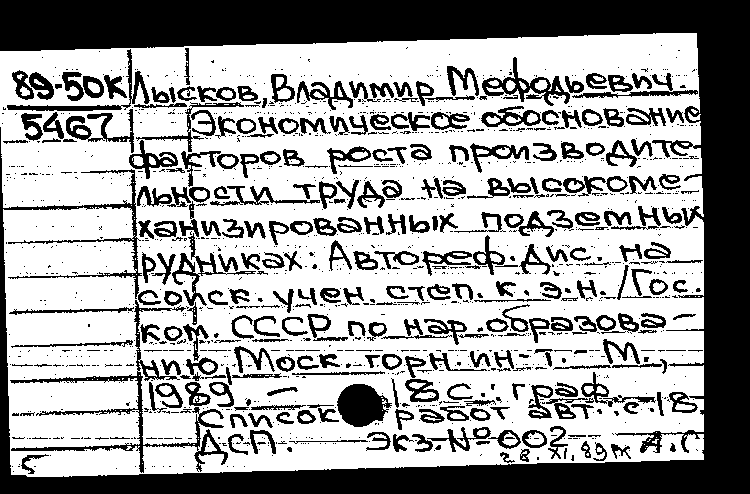 89-50К Лысков, Владимир Мефодьевич.
5467 Экономическое обоснование
факторов роста производите-
льности труда на высокоме-
ханизированных подземных
рудниках: Автореф. дис. на
соиск. учен. степ. к. э. н. /Гос.
ком. СССР по нар. образова-
нию, Моск. горн. ин-т. - М.,
1989. - 18 с.: граф.
Список работ авт.: с. 18.
ДСП. Экз. № 002
28. XI. 89 А.С.
5